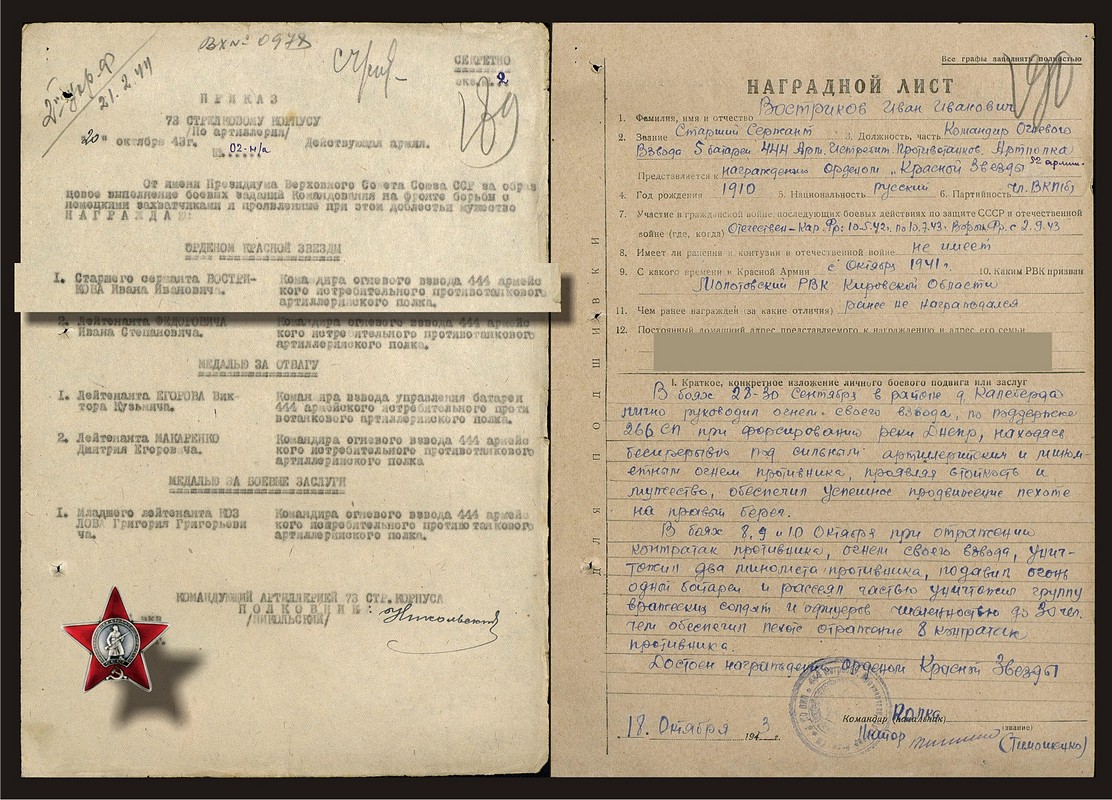 Вх № 0978
21.2.44
СЕКРЕТНО
экз. 2
189
ПРИКАЗ
73 СТРЕЛКОВОМУ КОРПУСУ
/По артиллерии/
"20" октября 43г. Действующая армия.
№ 02-н/л
От имени Президиума Верховного Совета Союза ССР за образ
цовое выполнение боевых заданий Командования на фронте борьбы с
немецкими захватчиками и проявленные при этом доблесть и мужество
НАГРАЖДАЮ:
ОРДЕНОМ КРАСНОЙ ЗВЕЗДЫ
1. Старшего сержанта ВОСТРИ- Командира огневого взвода 444 армейс
КОВА Ивана Ивановича. кого истребительного противотанкового
артиллерийского полка.
2. Лейтенанта ФЕДОРОВИЧА Командира огневого взвода 444 армейс
Ивана Степановича. кого истребительного противотанкового
артиллерийского полка.
МЕДАЛЬЮ ЗА ОТВАГУ
1. Лейтенанта ЕГОРОВА Вик- Командира взвода управления батареи
тора Кузьмича. 444 армейского истребительного проти
вотанкового артиллерийского полка.
2. Лейтенанта МАКАРЕНКО Командира огневого взвода 444 армейс
Дмитрия Егоровича. кого истребительного противотанкового
артиллерийского полка
МЕДАЛЬЮ ЗА БОЕВЫЕ ЗАСЛУГИ
1. Младшего лейтенанта КОЗ Командира огневого взвода 444 армейс
ЛОВА Григория Григорьеви кого истребительного противотанкового
ча. артиллерийского полка.
КОМАНДУЮЩИЙ АРТИЛЛЕРИЕЙ 73 СТР. КОРПУСА
ПОЛКОВНИК:
/НИКОЛЬСКИЙ/
Никольский
Все графы заполнять полностью
190
НАГРАДНОЙ ЛИСТ
1. Фамилия, имя и отчество Востриков Иван Иванович
2. Звание Старший Сержант 3. Должность, часть Командир Огневого
Взвода 5 батареи 444 Арт. Истребит. Противотанков. Артполка
52 армии.
Представляется к награждению Орденом "Красной Звезды"
4. Год рождения 1910 5. Национальность русский 6. Партийность Чл. ВКП(б)
7. Участие в гражданской войне, последующих боевых действиях по защите СССР и отечественной
войне (где, когда) Отечествен-Кар. Фр: 10.5.42г. по 10.7.43. Ворон. Фр. с 2.9.43
8. Имеет ли ранения и контузии в отечественной войне не имеет
9. С какого времени в Красной Армии с Октября 1941г. 10. Каким РВК призван
Молотовский РВК Кировской Области
11. Чем ранее награжден (за какие отличия) ранее не награждался
12. Постоянный домашний адрес представляемого к награждению и адрес его семьи
ДЛЯ ПОДШИВКИ
I. Краткое, конкретное изложение личного боевого подвига или заслуг
В боях 28-30 Сентября в районе д. Калеберда
лично руководил огнем своего взвода, по поддержке
266 СП при форсировании реки Днепр, находясь
беспрерывно под сильным артиллерийским и мином-
етным огнем противника, проявляя стойкость и
мужество, обеспечил успешное продвижение пехоте
на правый берег.
В боях 8, 9 и 10 Октября при отражении
контратак противника, огнем своего взвода, унич-
тожил два миномета противника, подавил огонь
одной батареи и рассеял частью уничтожил группу
вражеских солдат и офицеров численностью до 30 чел.
чем обеспечил пехоте отражение 8 контратак
противника.
Достоен награждения орденом Красной Звезды
Командир (начальник) Полка
18. Октября 1943 г. Майор (звание)
(Тимошенко)